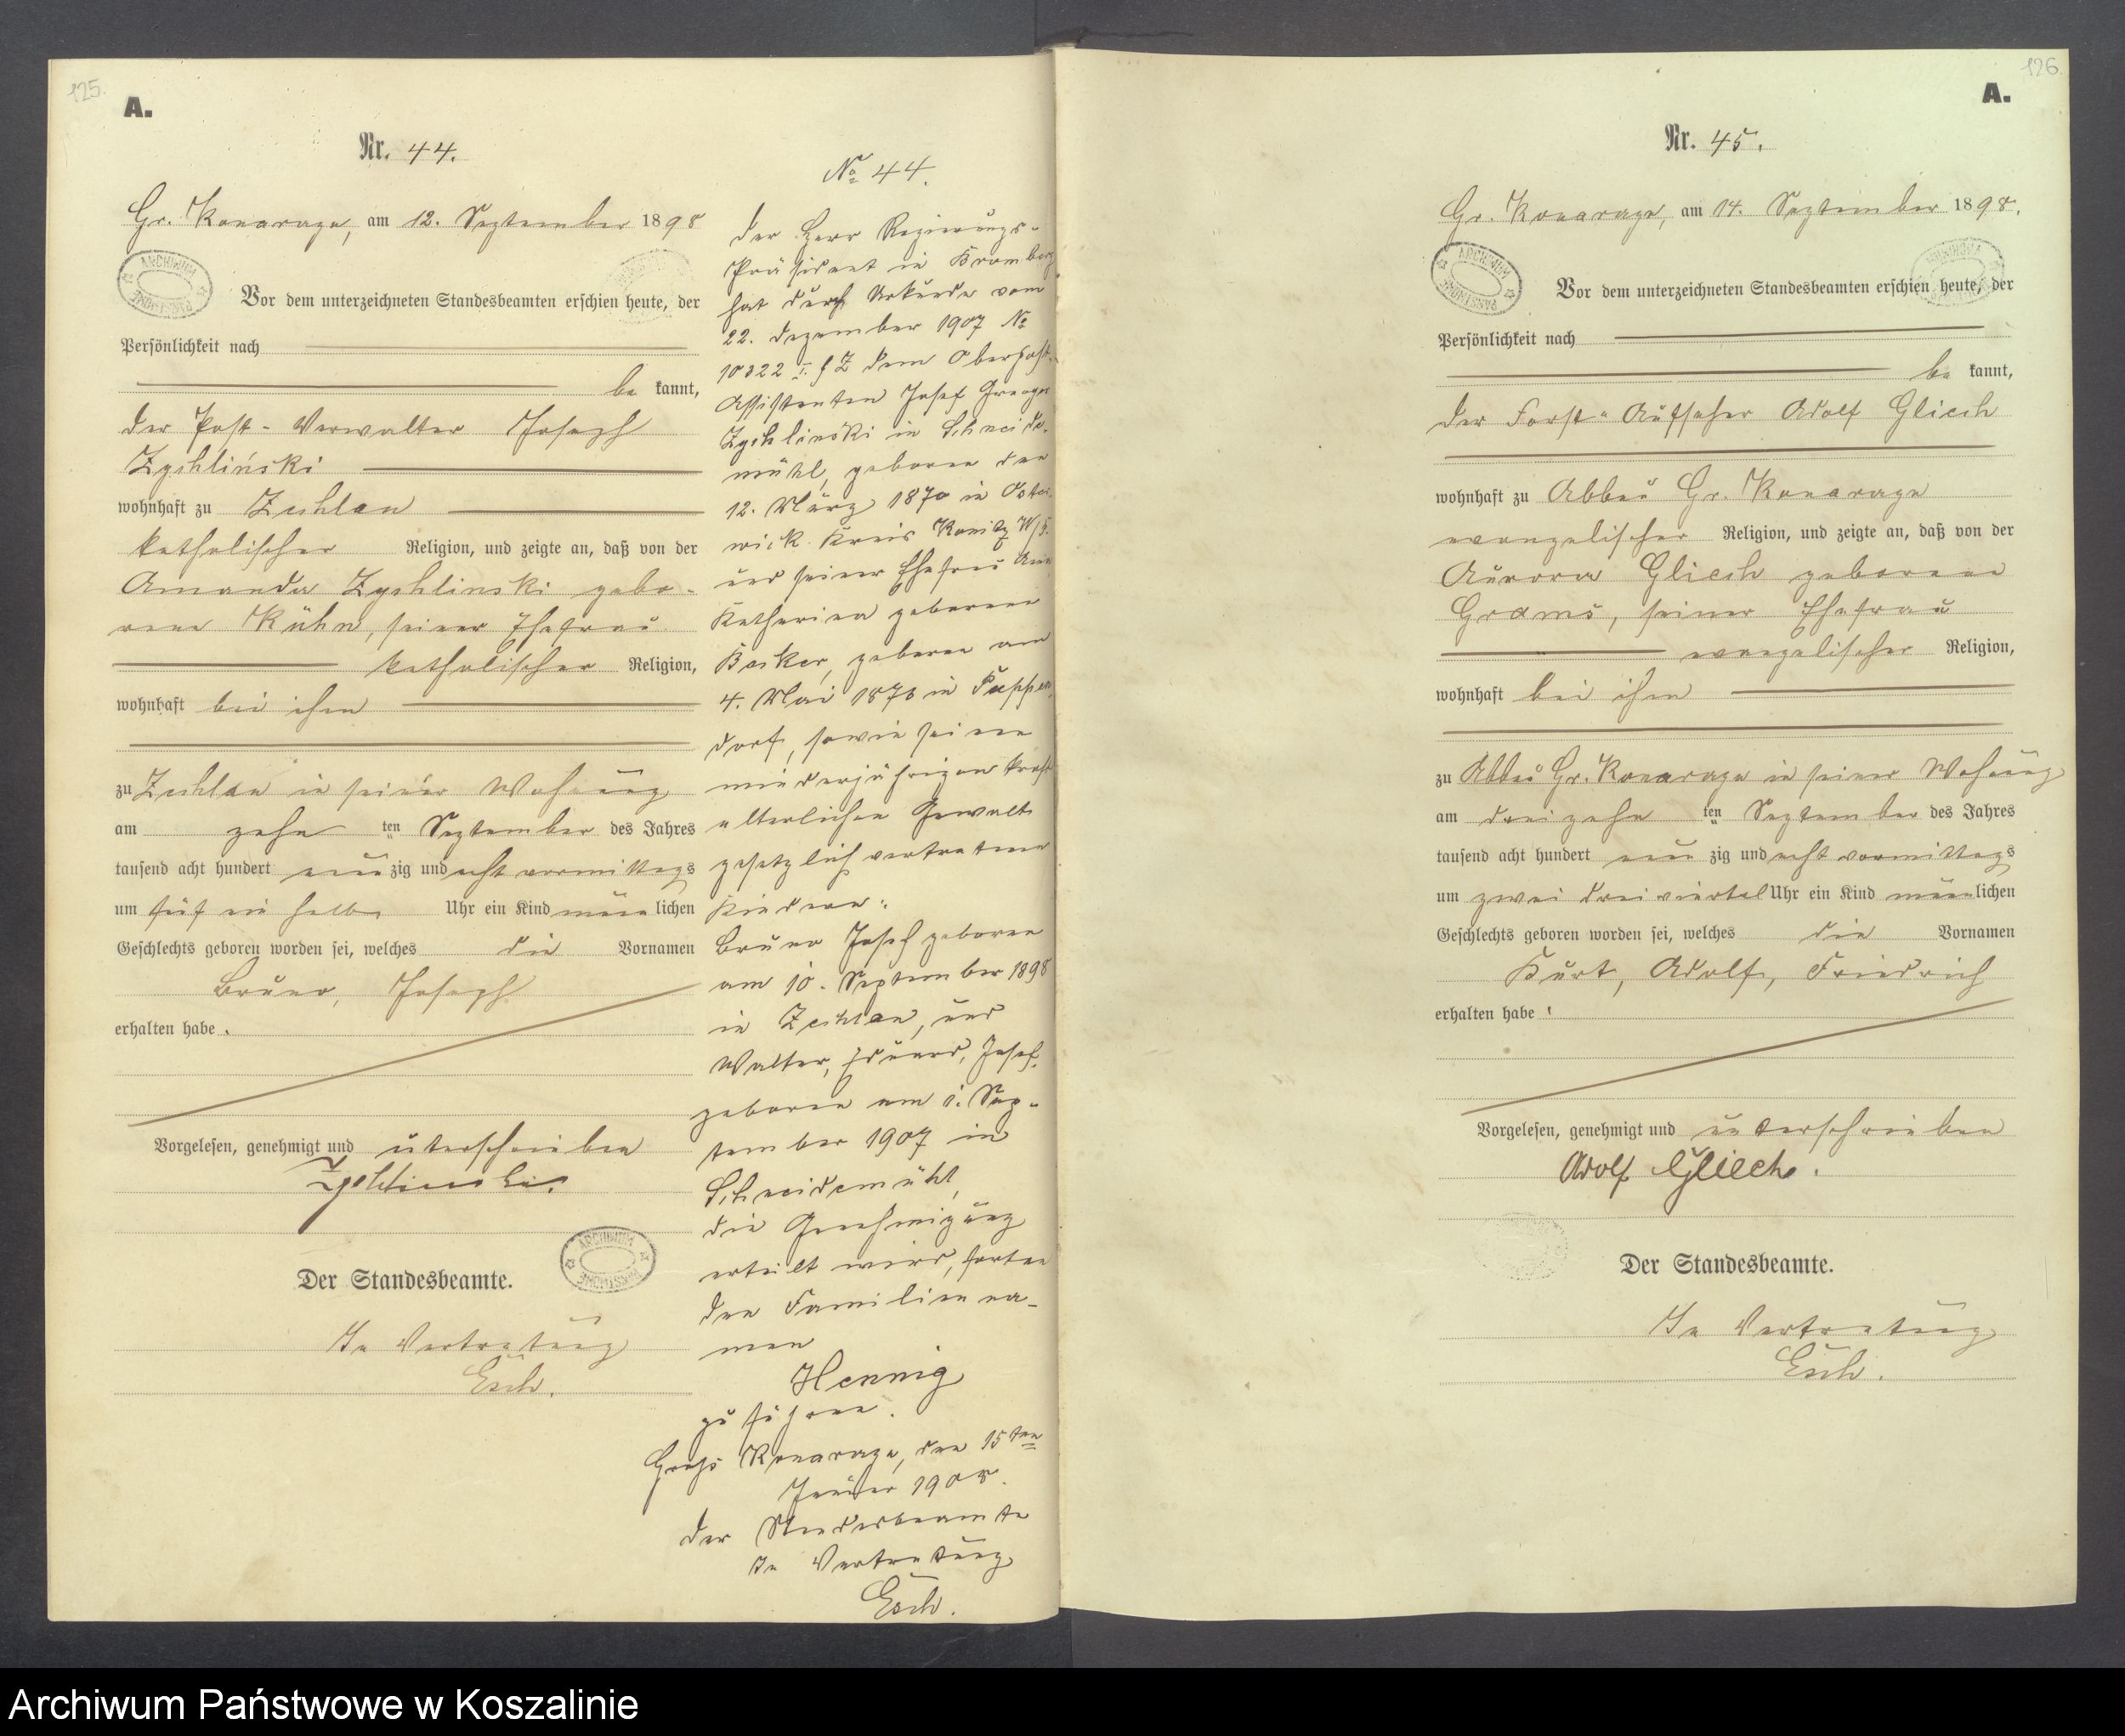 125.
A.
Nr. 44.
Gr. Konarzyn, am 12. September 1898
ARCHIWUM PAŃSTWOWE
Vor dem unterzeichneten Standesbeamten erschien heute, der
Persönlichkeit nach
be kannt,
der Post-Verwalter Joseph
Zychliński
wohnhaft zu Zechlau
katholischer Religion, und zeigte an, daß von der
Amanda Zychlinski gebo-
rene Kühn, seiner Ehefrau
katholischer Religion,
wohnhaft bei ihm
zu Zechlau in seiner Wohnung
am zehn ten September des Jahres
tausend acht hundert neun zig und acht vormittags
um fünf ein halb Uhr ein Kind männ lichen
Geschlechts geboren worden sei, welches die Vornamen
Bruno, Joseph
erhalten habe.
Vorgelesen, genehmigt und unterschrieben
Zychlinski.
ARCHIWUM PAŃSTWOWE
Der Standesbeamte.
In Vertretung
Esch.
No 44.
Der Herr Regierungs-
Präsident in Bromberg
hat durch Urkunde vom
22. Dezember 1907 No
10322 I. f Z dem Oberpost-
Assistenten Josef
Zychlinski in Schneide-
mühl, geboren den
12. März 1870 in Oster-
wick Kreis Konitz W/P.
und seiner Ehefrau
Katharina geborene
geboren am
4. Mai 1873 in
dorf, sowie seinen
minderjährigen kraft
elterlicher Gewalt
gesetzlich vertretenen
Kindern:
Bruno Josef geboren
am 10. September 1898
in Zechlau, und
Walter, Eduard, Josef,
geboren am 1. Sep-
tember 1907 in
Schneidemühl,
die Genehmigung
erteilt wird, fortan
den Familienna-
men
Hennig
zu führen.
Groß Konarzyn, den 15ten
Januar 1908.
Der Standesbeamte
In Vertretung
Esch.
126
A.
Nr. 45.
Gr. Konarzyn, am 14. September 1898.
ARCHIWUM PAŃSTWOWE
Vor dem unterzeichneten Standesbeamten erschien heute, der
Persönlichkeit nach
be kannt,
der Forst-Aufseher Adolf Gliech
wohnhaft zu Abbau Gr. Konarzyn
evangelischer Religion, und zeigte an, daß von der
Aurora Gliech geborene
Grams, seiner Ehefrau
evangelischer Religion,
wohnhaft bei ihm
zu Abbau Gr. Konarzyn in seiner Wohnung
am drei zehn ten September des Jahres
tausend acht hundert neun zig und acht vormittags
um zwei dreiviertel Uhr ein Kind männ lichen
Geschlechts geboren worden sei, welches die Vornamen
Kurt, Adolf, Friedrich
erhalten habe.
Vorgelesen, genehmigt und unterschrieben
Adolf Gliech.
Der Standesbeamte.
In Vertretung
Esch.
Archiwum Państwowe w Koszalinie